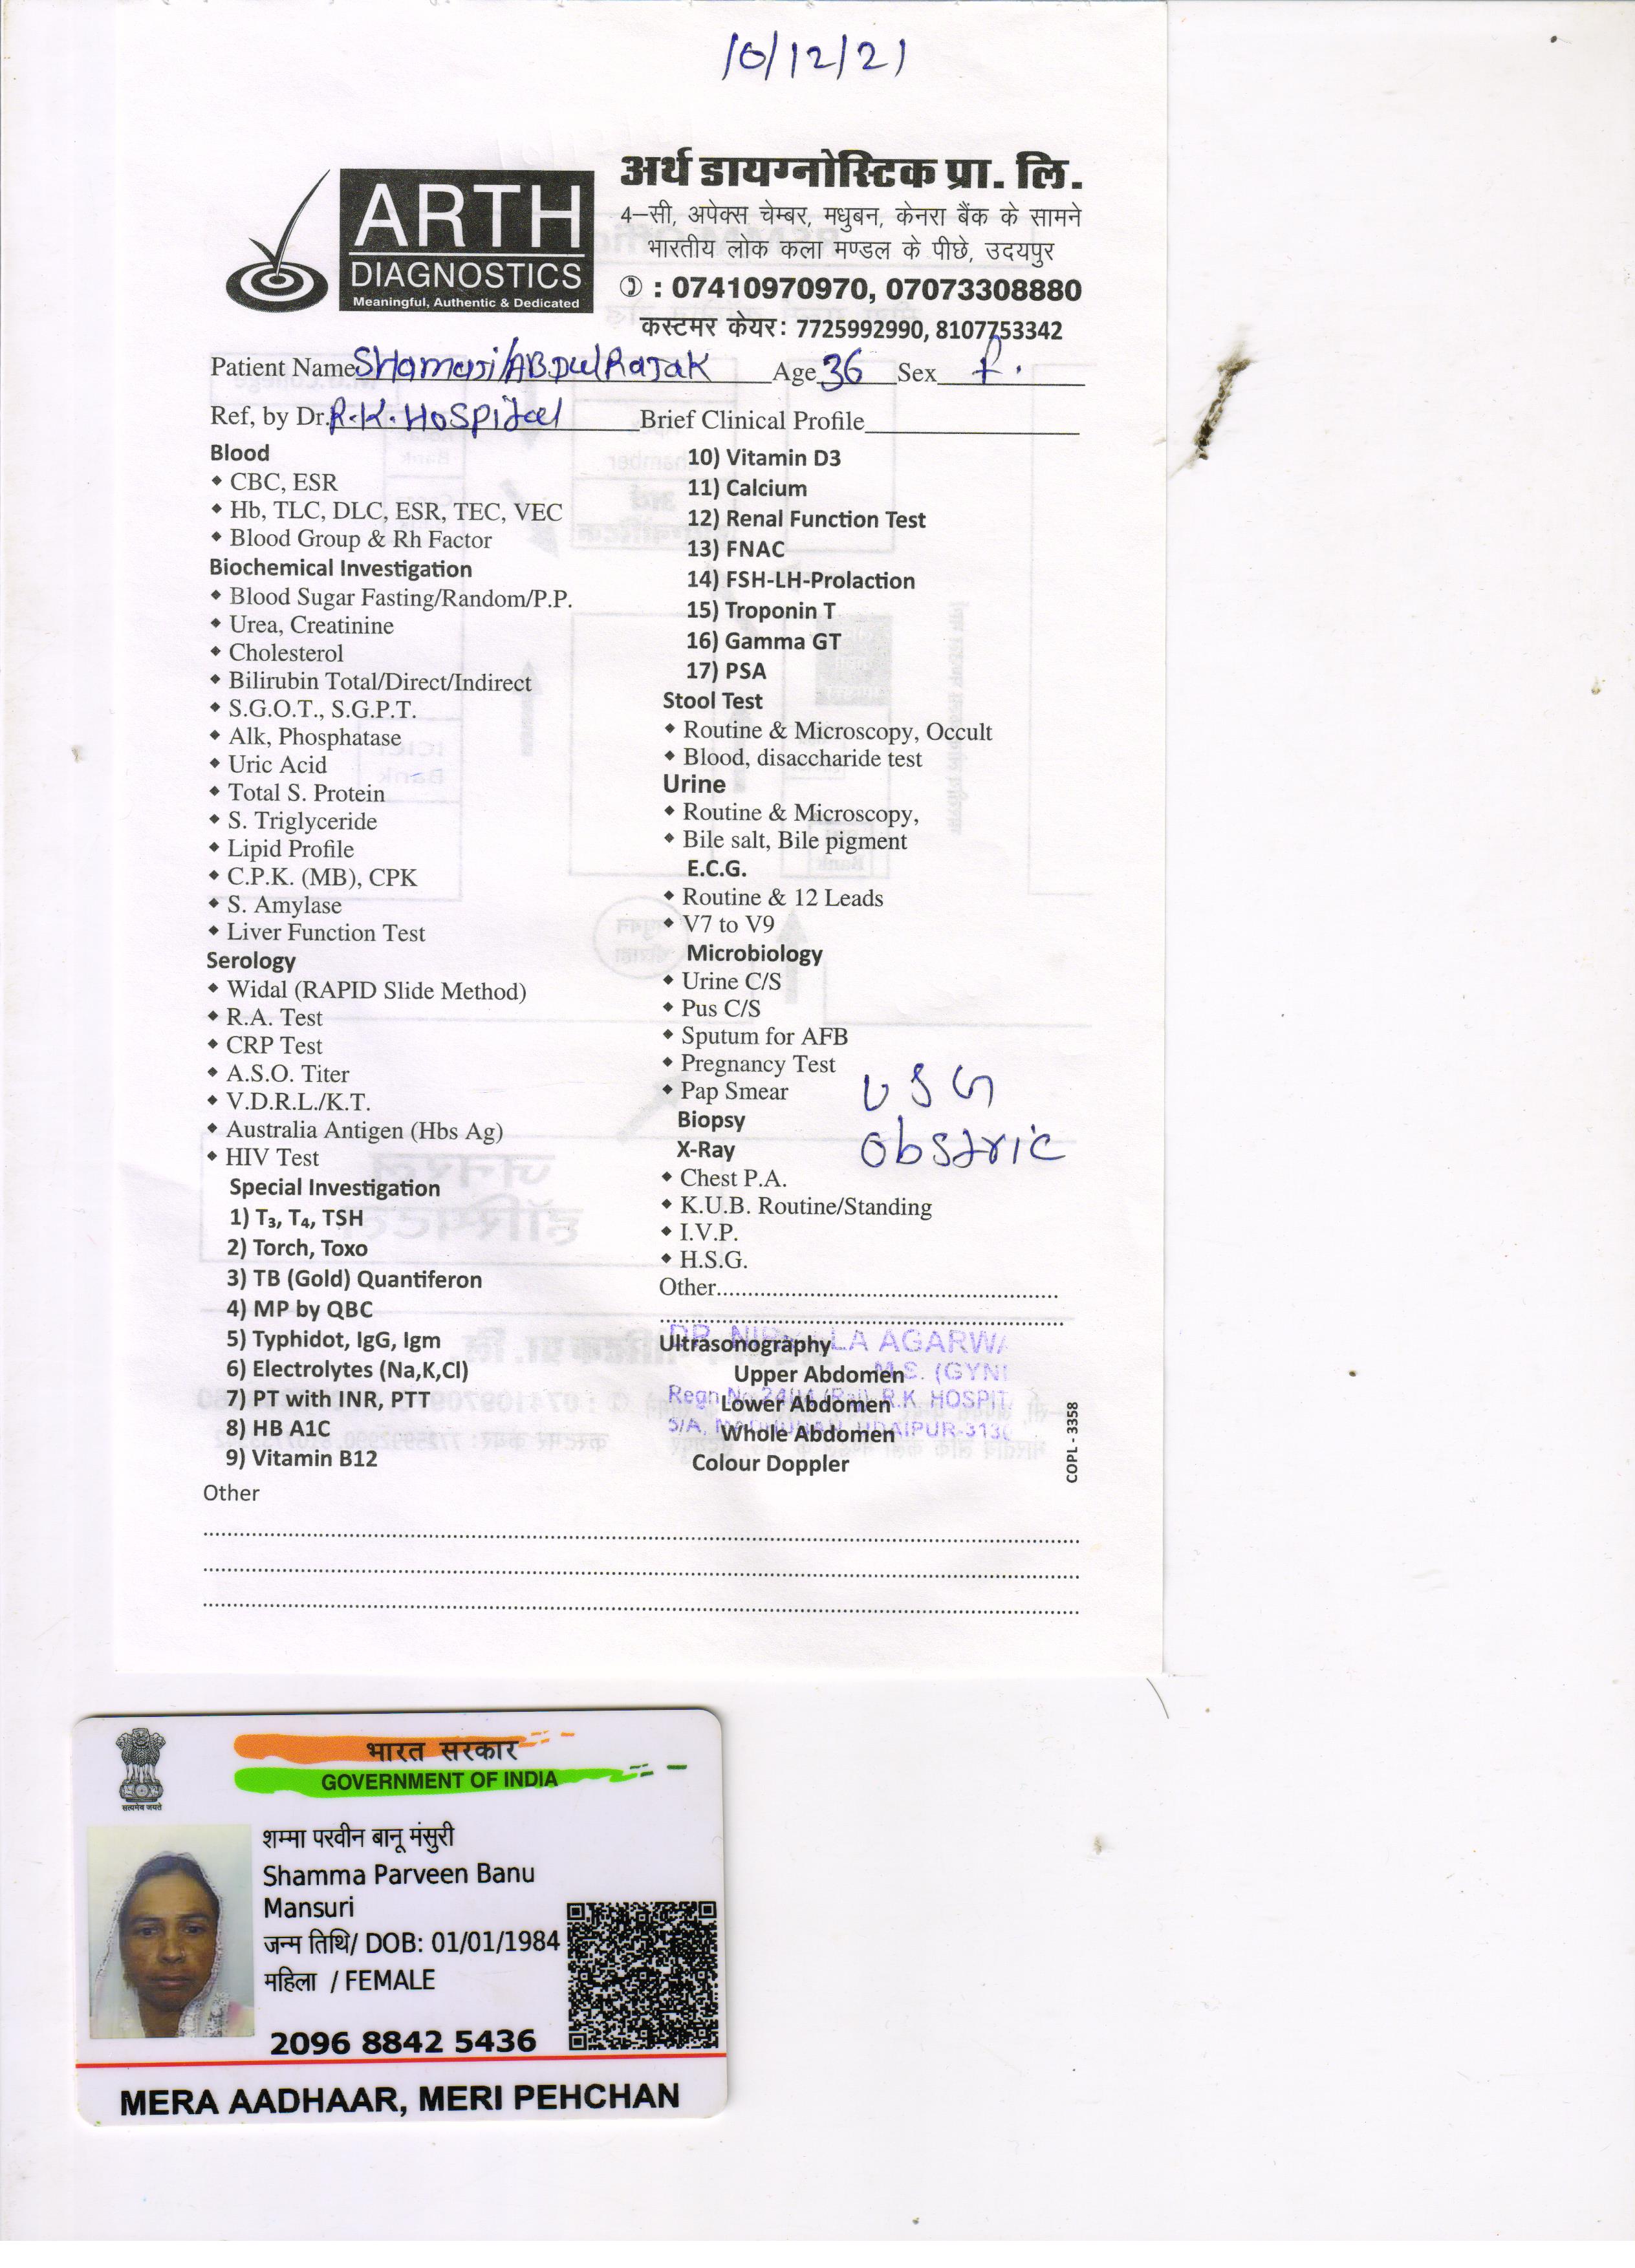 10/12/21
ARTH
DIAGNOSTICS
Meaningful, Authentic & Dedicated
अर्थ डायग्नोस्टिक प्रा. लि.
4–सी, अपेक्स चेम्बर, मधुबन, केनरा बैंक के सामने
भारतीय लोक कला मण्डल के पीछे, उदयपुर
: 07410970970, 07073308880
कस्टमर केयर: 7725992990, 8107753342
Patient Name ABDul RaJaK Age 36 Sex f.
Ref, by Dr. R.K. HoSpital Brief Clinical Profile
Blood
CBC, ESR
Hb, TLC, DLC, ESR, TEC, VEC
Blood Group & Rh Factor
Biochemical Investigation
Blood Sugar Fasting/Random/P.P.
Urea, Creatinine
Cholesterol
Bilirubin Total/Direct/Indirect
S.G.O.T., S.G.P.T.
Alk, Phosphatase
Uric Acid
Total S. Protein
S. Triglyceride
Lipid Profile
C.P.K. (MB), CPK
S. Amylase
Liver Function Test
Serology
Widal (RAPID Slide Method)
R.A. Test
CRP Test
A.S.O. Titer
V.D.R.L./K.T.
Australia Antigen (Hbs Ag)
HIV Test
Special Investigation
1) T₃, T₄, TSH
2) Torch, Toxo
3) TB (Gold) Quantiferon
4) MP by QBC
5) Typhidot, IgG, Igm
6) Electrolytes (Na,K,Cl)
7) PT with INR, PTT
8) HB A1C
9) Vitamin B12
10) Vitamin D3
11) Calcium
12) Renal Function Test
13) FNAC
14) FSH-LH-Prolaction
15) Troponin T
16) Gamma GT
17) PSA
Stool Test
Routine & Microscopy, Occult
Blood, disaccharide test
Urine
Routine & Microscopy,
Bile salt, Bile pigment
E.C.G.
Routine & 12 Leads
V7 to V9
Microbiology
Urine C/S
Pus C/S
Sputum for AFB
Pregnancy Test
Pap Smear
USG
Obstric
Biopsy
X-Ray
Chest P.A.
K.U.B. Routine/Standing
I.V.P.
H.S.G.
Other
Ultrasonography
Upper Abdomen
Lower Abdomen
Whole Abdomen
Colour Doppler
DR. LA AGARWA
M.S. (GYN
Regn.No. R.K. HOSPIT
5/A, UDAIPUR-313
COPL - 3358
Other
भारत सरकार
GOVERNMENT OF INDIA
सत्यमेव जयते
शम्मा परवीन बानू मंसुरी
Shamma Parveen Banu
Mansuri
जन्म तिथि/ DOB: 01/01/1984
महिला / FEMALE
2096 8842 5436
MERA AADHAAR, MERI PEHCHAN